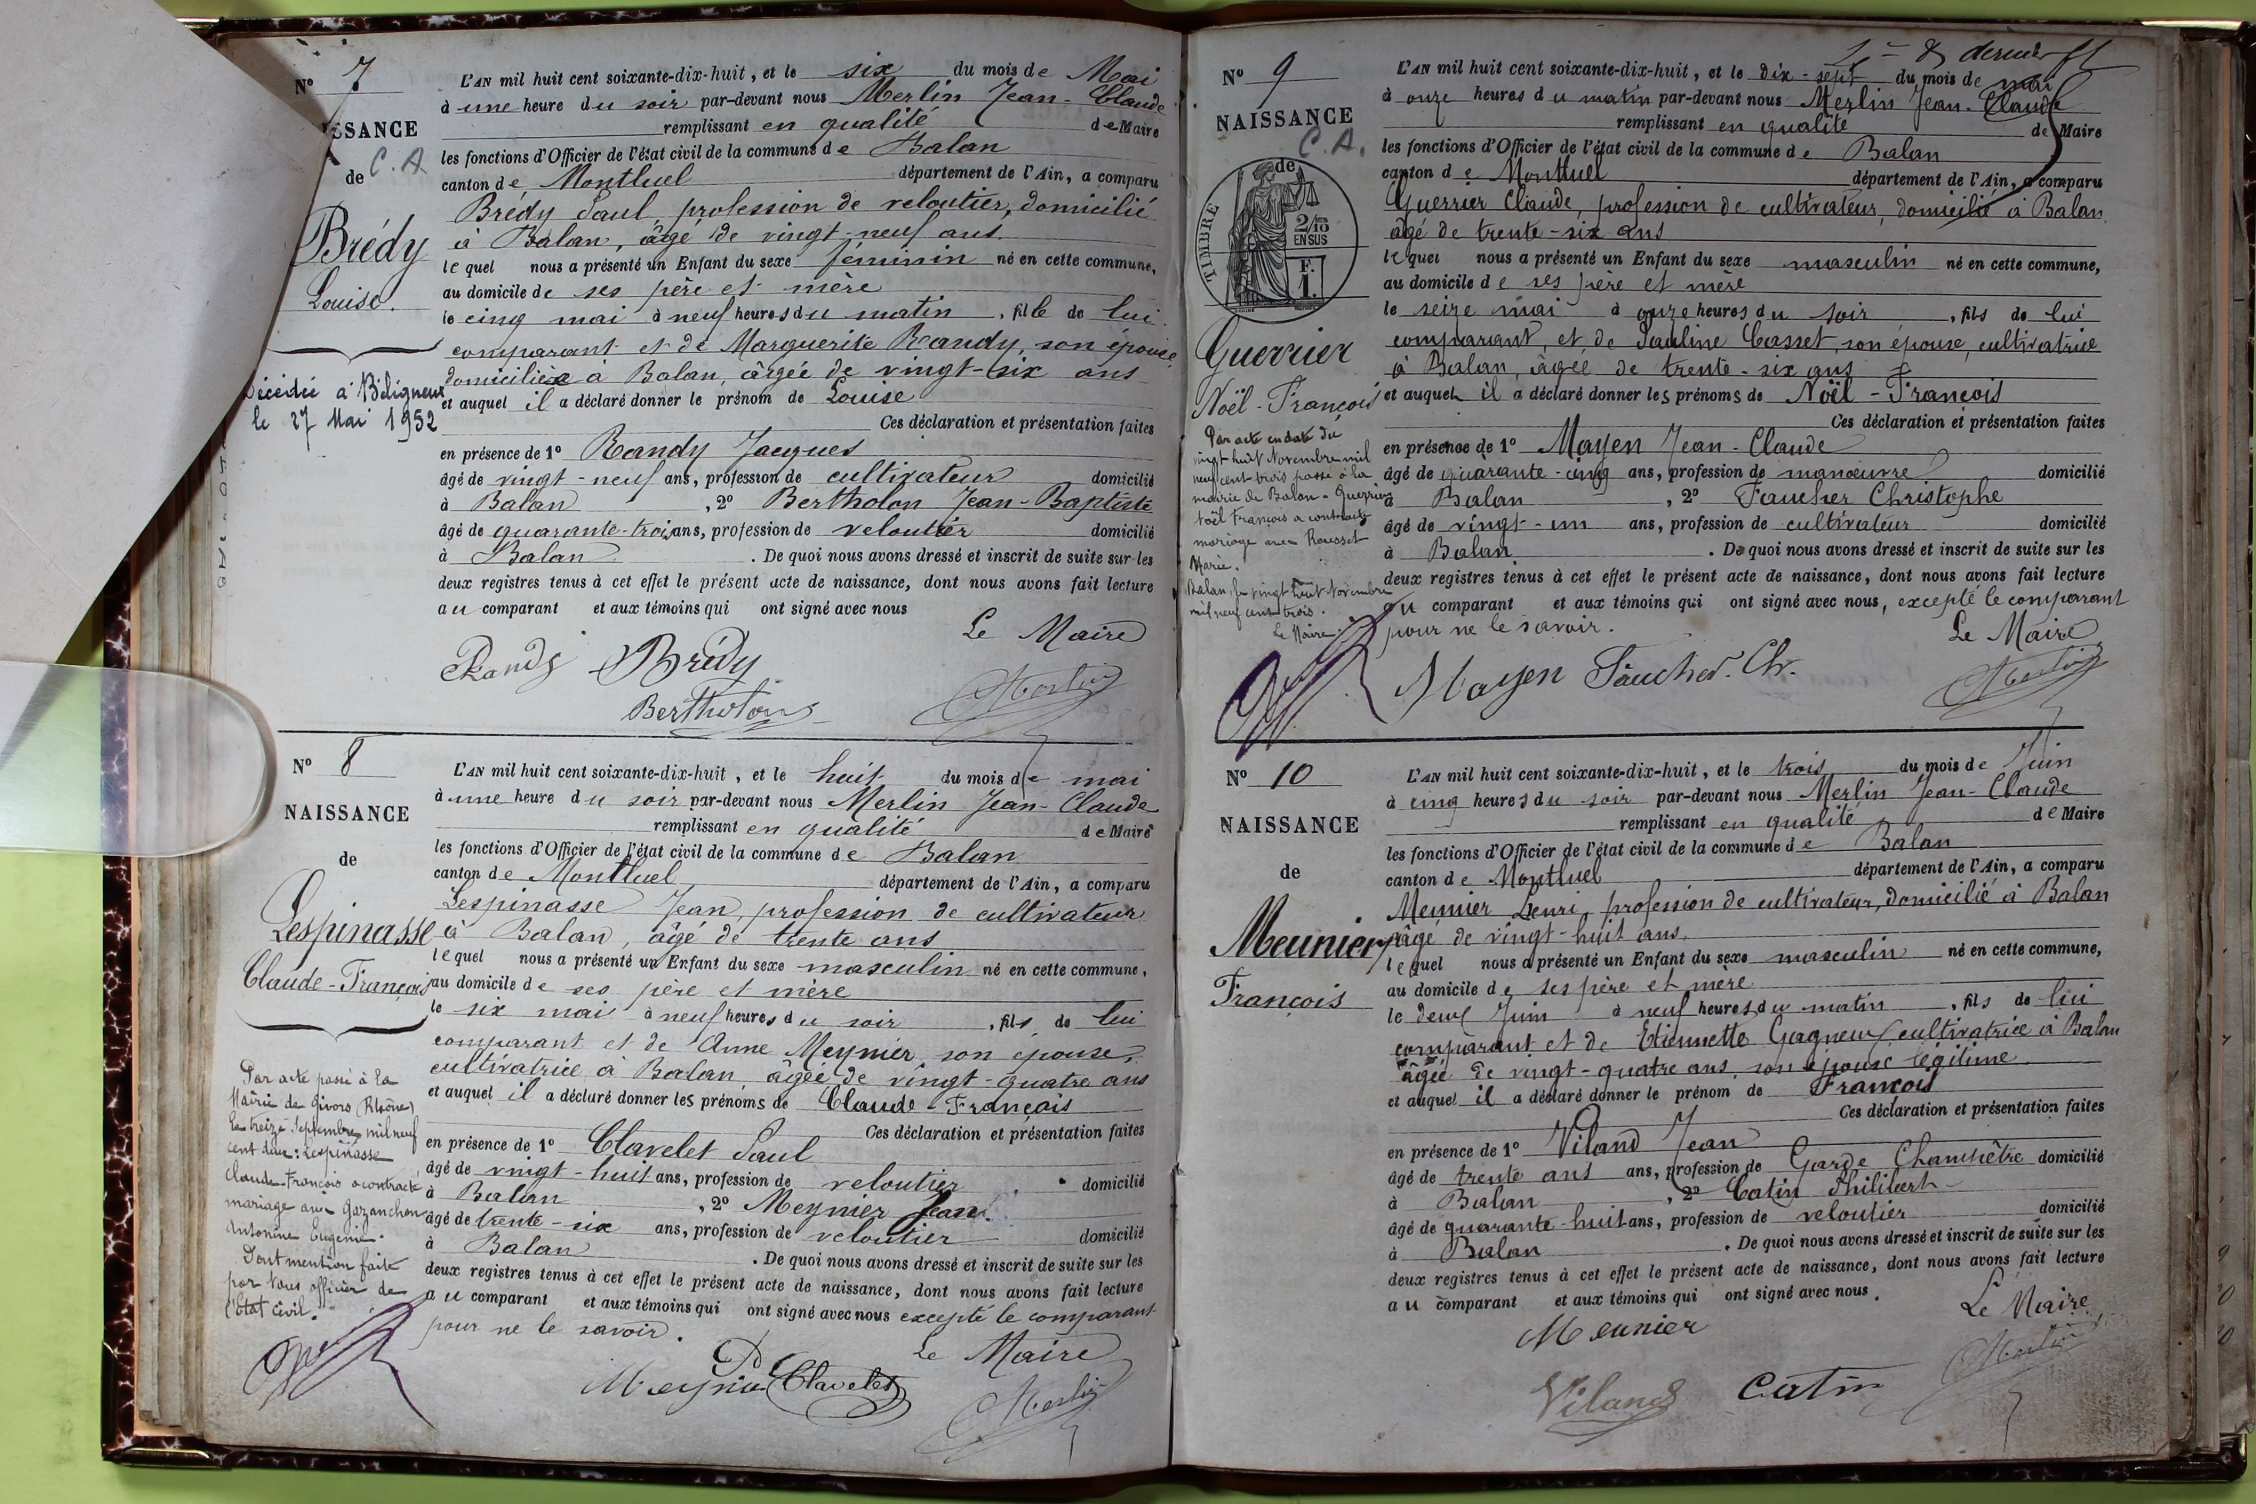 Nº 7
SSANCE
de C. A.
Brédy
Louise.
Décédée à Béligneux
le 27 Mai 1952
L'AN mil huit cent soixante-dix-huit, et le six du mois de Mai
à une heure du soir par-devant nous Merlin Jean-Claude
remplissant en qualité de Maire
les fonctions d'Officier de l'état civil de la commune de Balan
canton de Montluel département de l'Ain, a comparu
Brédy Paul, profession de veloutier, domicilié
à Balan, âgé de vingt-neuf ans.
lequel nous a présenté un Enfant du sexe féminin né en cette commune,
au domicile de ses père et mère
le cinq mai à neuf heures du matin, fille de lui
comparant et de Marguerite Randy, son épouse,
domiciliée à Balan, âgée de vingt-six ans
et auquel il a déclaré donner le prénom de Louise
Ces déclaration et présentation faites
en présence de 1º Randy Jacques
âgé de vingt-neuf ans, profession de cultivateur domicilié
à Balan, 2º Bertholon Jean-Baptiste
âgé de quarante-trois ans, profession de veloutier domicilié
à Balan. De quoi nous avons dressé et inscrit de suite sur les
deux registres tenus à cet effet le présent acte de naissance, dont nous avons fait lecture
au comparant et aux témoins qui ont signé avec nous
Le Maire
Randy Brédy
Bertholon Merlin
Nº 8
NAISSANCE
de
Lespinasse
Claude-François
Par acte passé à la
Mairie de Givors (Rhône)
le treize Septembre mil neuf
cent deux: Lespinasse
Claude-François a contracté
mariage avec Gazanchon
Antonine Eugénie.
Dont mention faite
par Nous officier de
l'Etat civil.
L'AN mil huit cent soixante-dix-huit, et le huit du mois de mai
à une heure du soir par-devant nous Merlin Jean-Claude
remplissant en qualité de Maire
les fonctions d'Officier de l'état civil de la commune de Balan
canton de Montluel département de l'Ain, a comparu
Lespinasse Jean, profession de cultivateur
à Balan, âgé de trente ans
lequel nous a présenté un Enfant du sexe masculin né en cette commune,
au domicile de ses père et mère
le six mai à neuf heures du soir, fils de lui
comparant et de Anne Meynier son épouse,
cultivatrice à Balan, âgée de vingt-quatre ans
et auquel il a déclaré donner les prénoms de Claude-François
Ces déclaration et présentation faites
en présence de 1º Clavelet Paul
âgé de vingt-huit ans, profession de veloutier domicilié
à Balan, 2º Meynier Jean.
âgé de trente-six ans, profession de veloutier domicilié
à Balan. De quoi nous avons dressé et inscrit de suite sur les
deux registres tenus à cet effet le présent acte de naissance, dont nous avons fait lecture
au comparant et aux témoins qui ont signé avec nous excepté le comparant
pour ne le savoir.
Le Maire
Meynier Clavelet
Merlin
Nº 9
NAISSANCE
C. A.
de
TIMBRE
2/10
EN SUS
F.
1.
Guerrier
Noël-François
Par acte en date du
vingt huit Novembre mil
neuf cent trois passé à la
mairie de Balan - Guerrier
Noël François a contracté
mariage avec Rousset
Marie.
Balan, le vingt huit Novembre
mil neuf cent trois.
Le Maire.
L'AN mil huit cent soixante-dix-huit, et le dix-sept du mois de mai
à onze heures du matin par-devant nous Merlin Jean-Claude
remplissant en qualité de Maire
les fonctions d'Officier de l'état civil de la commune de Balan
canton de Montluel département de l'Ain, a comparu
Guerrier Claude, profession de cultivateur, domicilié à Balan
âgé de trente-six ans
lequel nous a présenté un Enfant du sexe masculin né en cette commune,
au domicile de ses père et mère
le seize mai à onze heures du soir, fils de lui
comparant, et de Pauline Casset, son épouse, cultivatrice
à Balan, âgée de trente-six ans
et auquel il a déclaré donner les prénoms de Noël-François
Ces déclaration et présentation faites
en présence de 1º Mayen Jean-Claude
âgé de quarante-cinq ans, profession de manœuvre domicilié
à Balan, 2º Faucher Christophe
âgé de vingt-un ans, profession de cultivateur domicilié
à Balan. De quoi nous avons dressé et inscrit de suite sur les
deux registres tenus à cet effet le présent acte de naissance, dont nous avons fait lecture
au comparant et aux témoins qui ont signé avec nous, excepté le comparant
pour ne le savoir.
Le Maire
Mayen Faucher. Ch.
Merlin
Nº 10
NAISSANCE
de
Meunier
François
L'AN mil huit cent soixante-dix-huit, et le trois du mois de Juin
à cinq heures du soir par-devant nous Merlin Jean-Claude
remplissant en qualité de Maire
les fonctions d'Officier de l'état civil de la commune de Balan
canton de Montluel département de l'Ain, a comparu
Meunier Henri, profession de cultivateur, domicilié à Balan
âgé de vingt-huit ans.
lequel nous a présenté un Enfant du sexe masculin né en cette commune,
au domicile de ses père et mère
le deux Juin à neuf heures du matin, fils de lui
comparant et de Etiennette Gagneux cultivatrice à Balan
âgée de vingt-quatre ans, son épouse légitime
et auquel il a déclaré donner le prénom de François
Ces déclaration et présentation faites
en présence de 1º Viland Jean
âgé de trente ans ans, profession de Garde Champêtre domicilié
à Balan, 2º Catin Philibert
âgé de quarante-huit ans, profession de veloutier domicilié
à Balan. De quoi nous avons dressé et inscrit de suite sur les
deux registres tenus à cet effet le présent acte de naissance, dont nous avons fait lecture
au comparant et aux témoins qui ont signé avec nous.
Le Maire
Meunier
Viland Catin Merlin